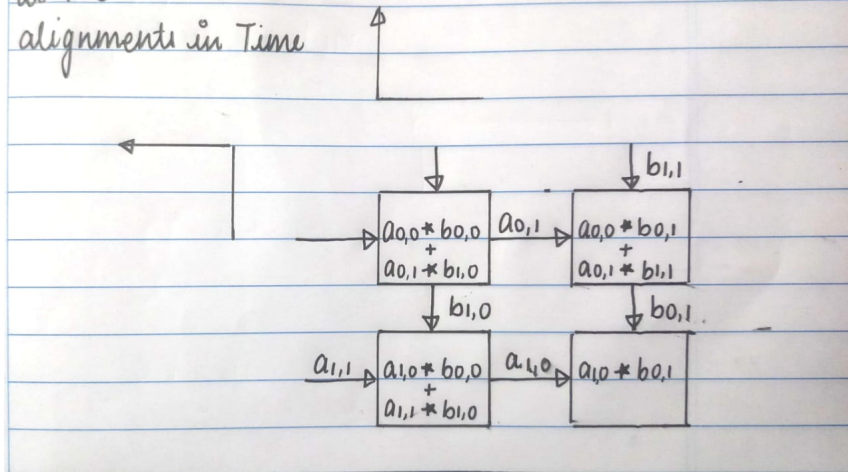 alignments in Time
b1,1
a0,0 * b0,0
+
a0,1 * b1,0
a0,1
a0,0 * b0,1
+
a0,1 * b1,1
b1,0
b0,1
a1,1
a1,0 * b0,0
+
a1,1 * b1,0
a1,0
a1,0 * b0,1